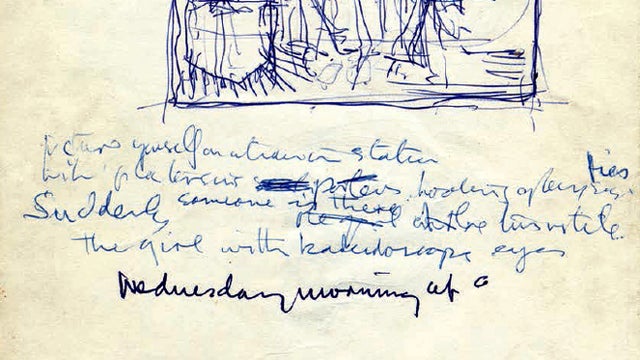 picture yourself on a train in station
with plasticine porters. looking glass ties
Suddenly someone is there at the turnstile
the girl with kaleidoscope eyes
Wednesday morning at